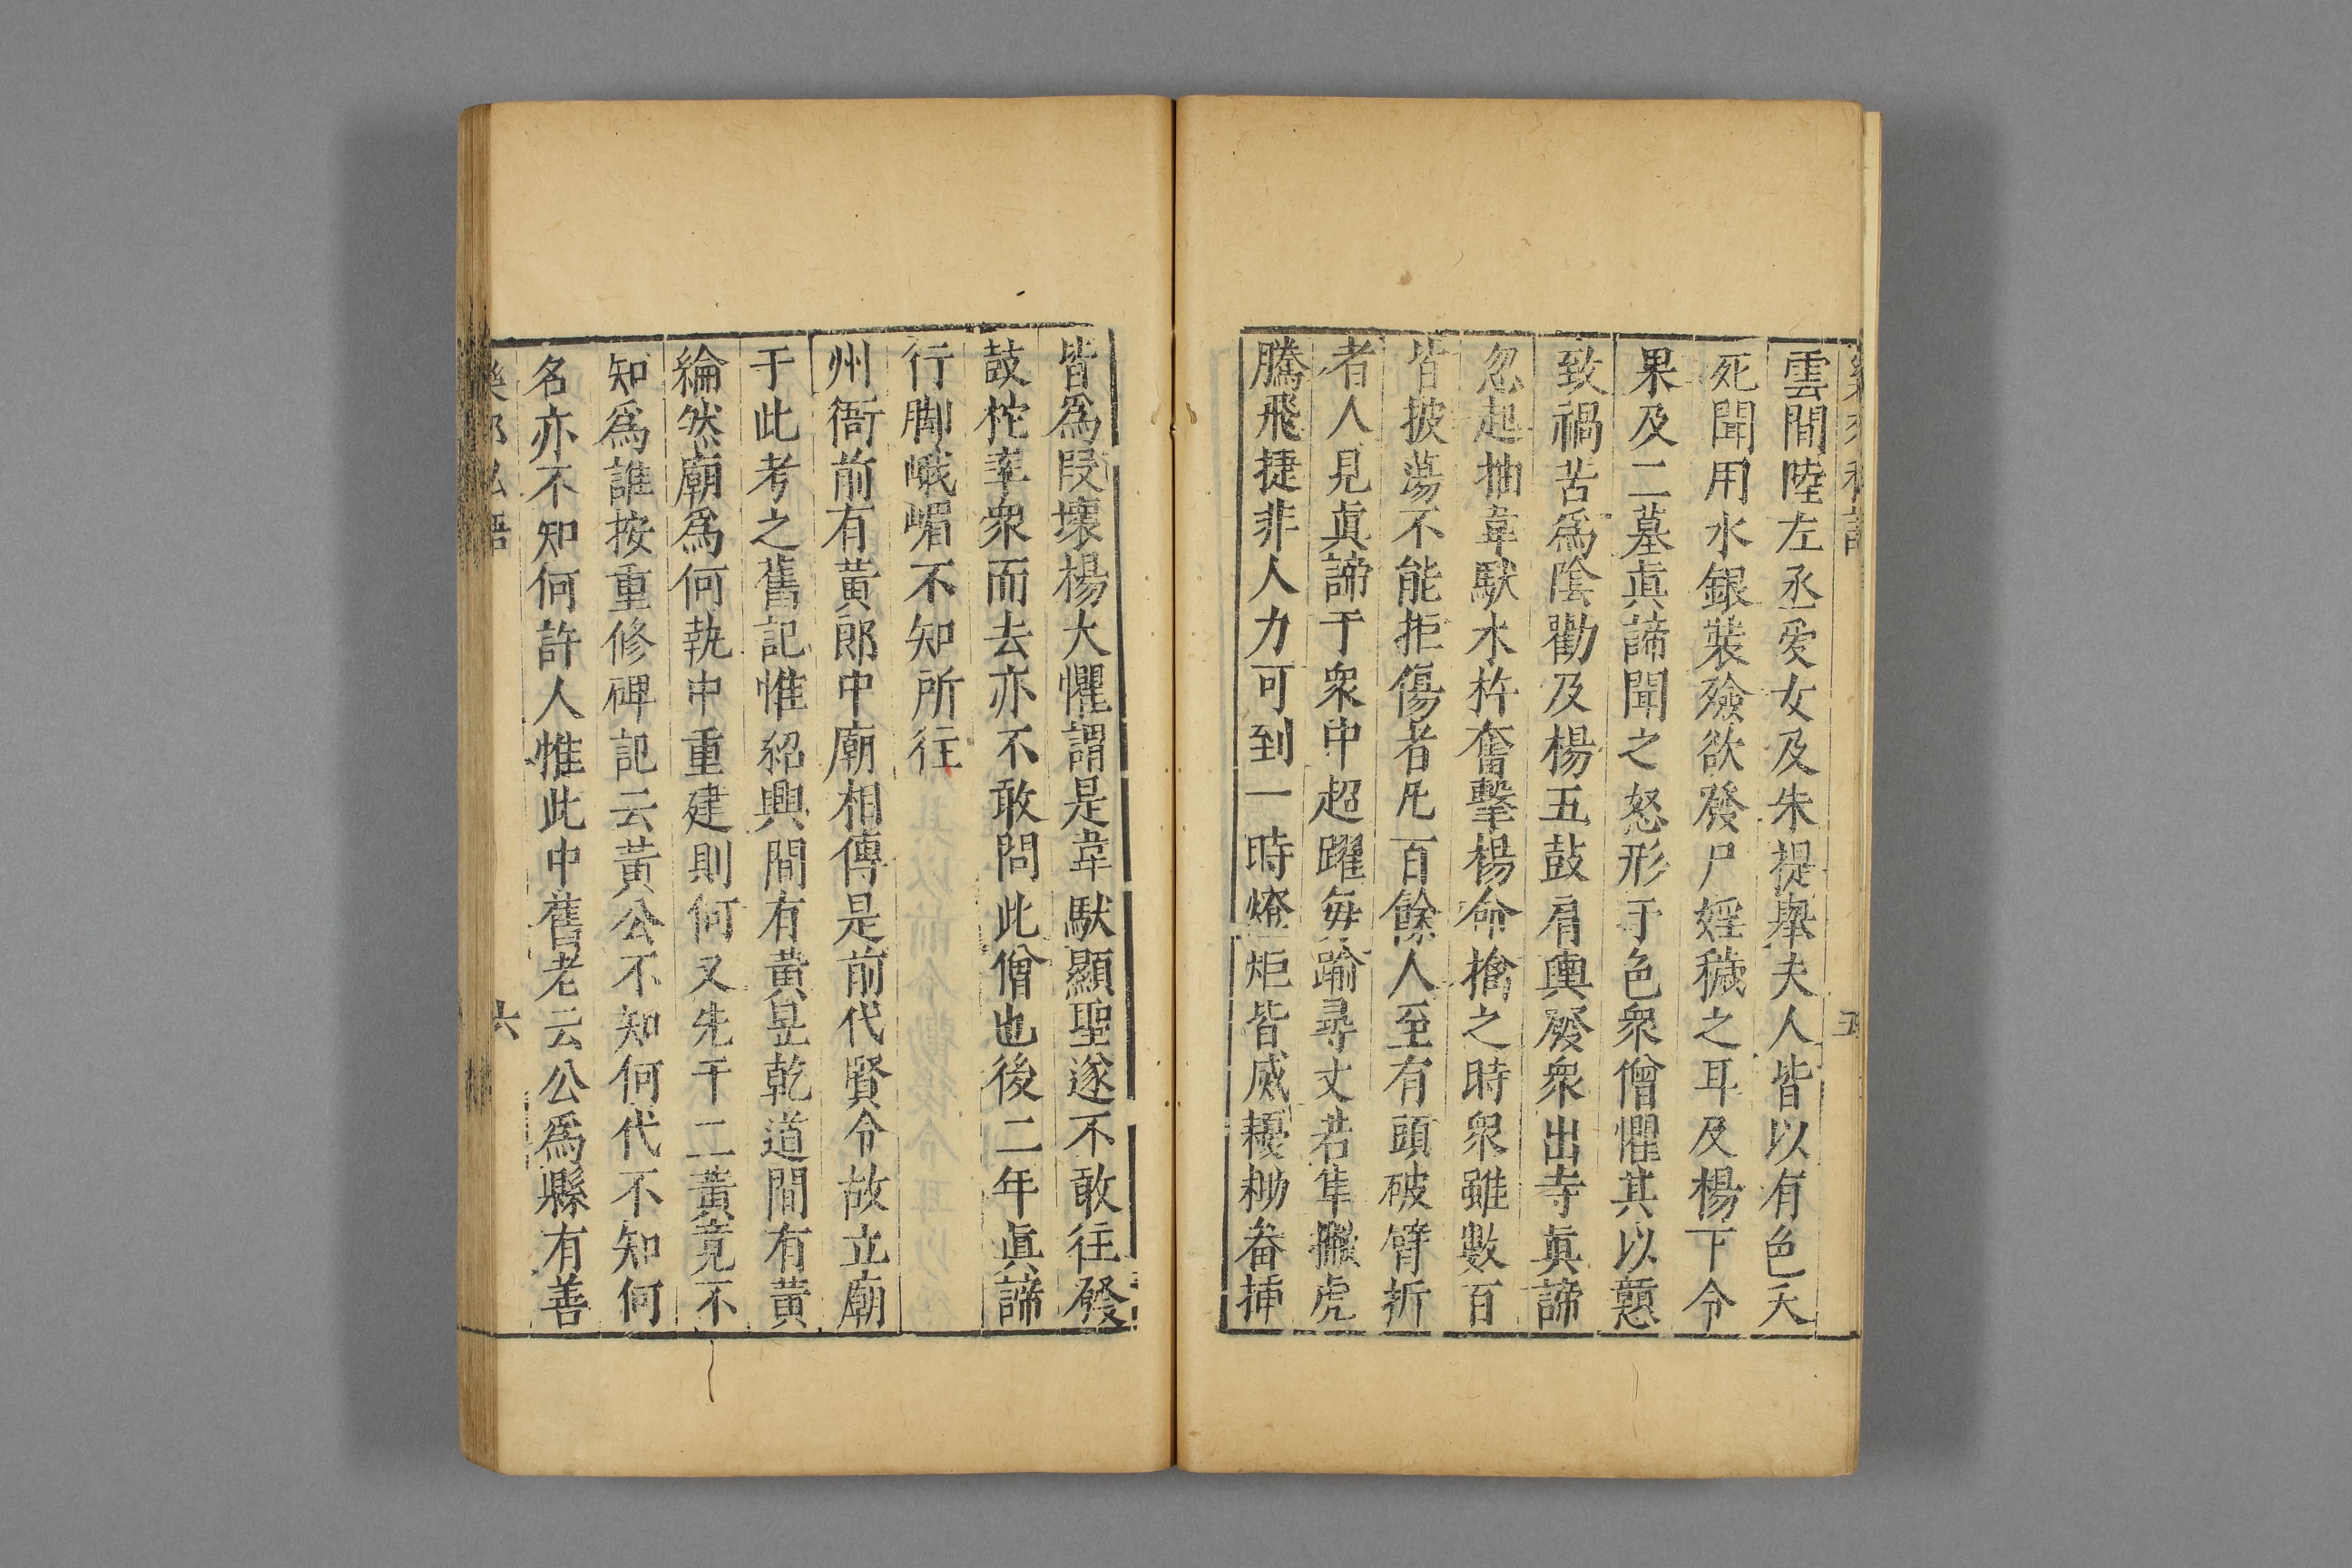 雲間陸左丞愛女及朱提舉夫人皆以有色夭
死聞用水銀裝殮欲發尸婬穢之耳及楊下令
果及二墓真諦聞之怒形于色衆僧懼其以愆
致禍苦爲陰勸及楊五鼓肩輿發衆出寺真諦
忽起抽韋馱木杵奮擊楊命擒之時衆雖數百
皆披蕩不能拒傷者凡百餘人至有頭破臂折
者人見真諦于衆中超躍每踰尋丈若隼撇虎
騰飛捷非人力可到一時燎炬皆㓕耰耡畚揷
皆爲段壞楊大懼謂是韋馱顯聖遂不敢往發
鼓柁率衆而去亦不敢問此僧也後二年真諦
行脚峨嵋不知所往
州衙前有黄郎中廟相傳是前代賢令故立廟
于此考之舊記惟紹興間有黄昱乾道間有黄
綸然廟爲何執中重建則何又先于二黄竟不
知爲誰按重修碑記云黄公不知何代不知何
名亦不知何許人惟此中舊老云公爲縣有善
六